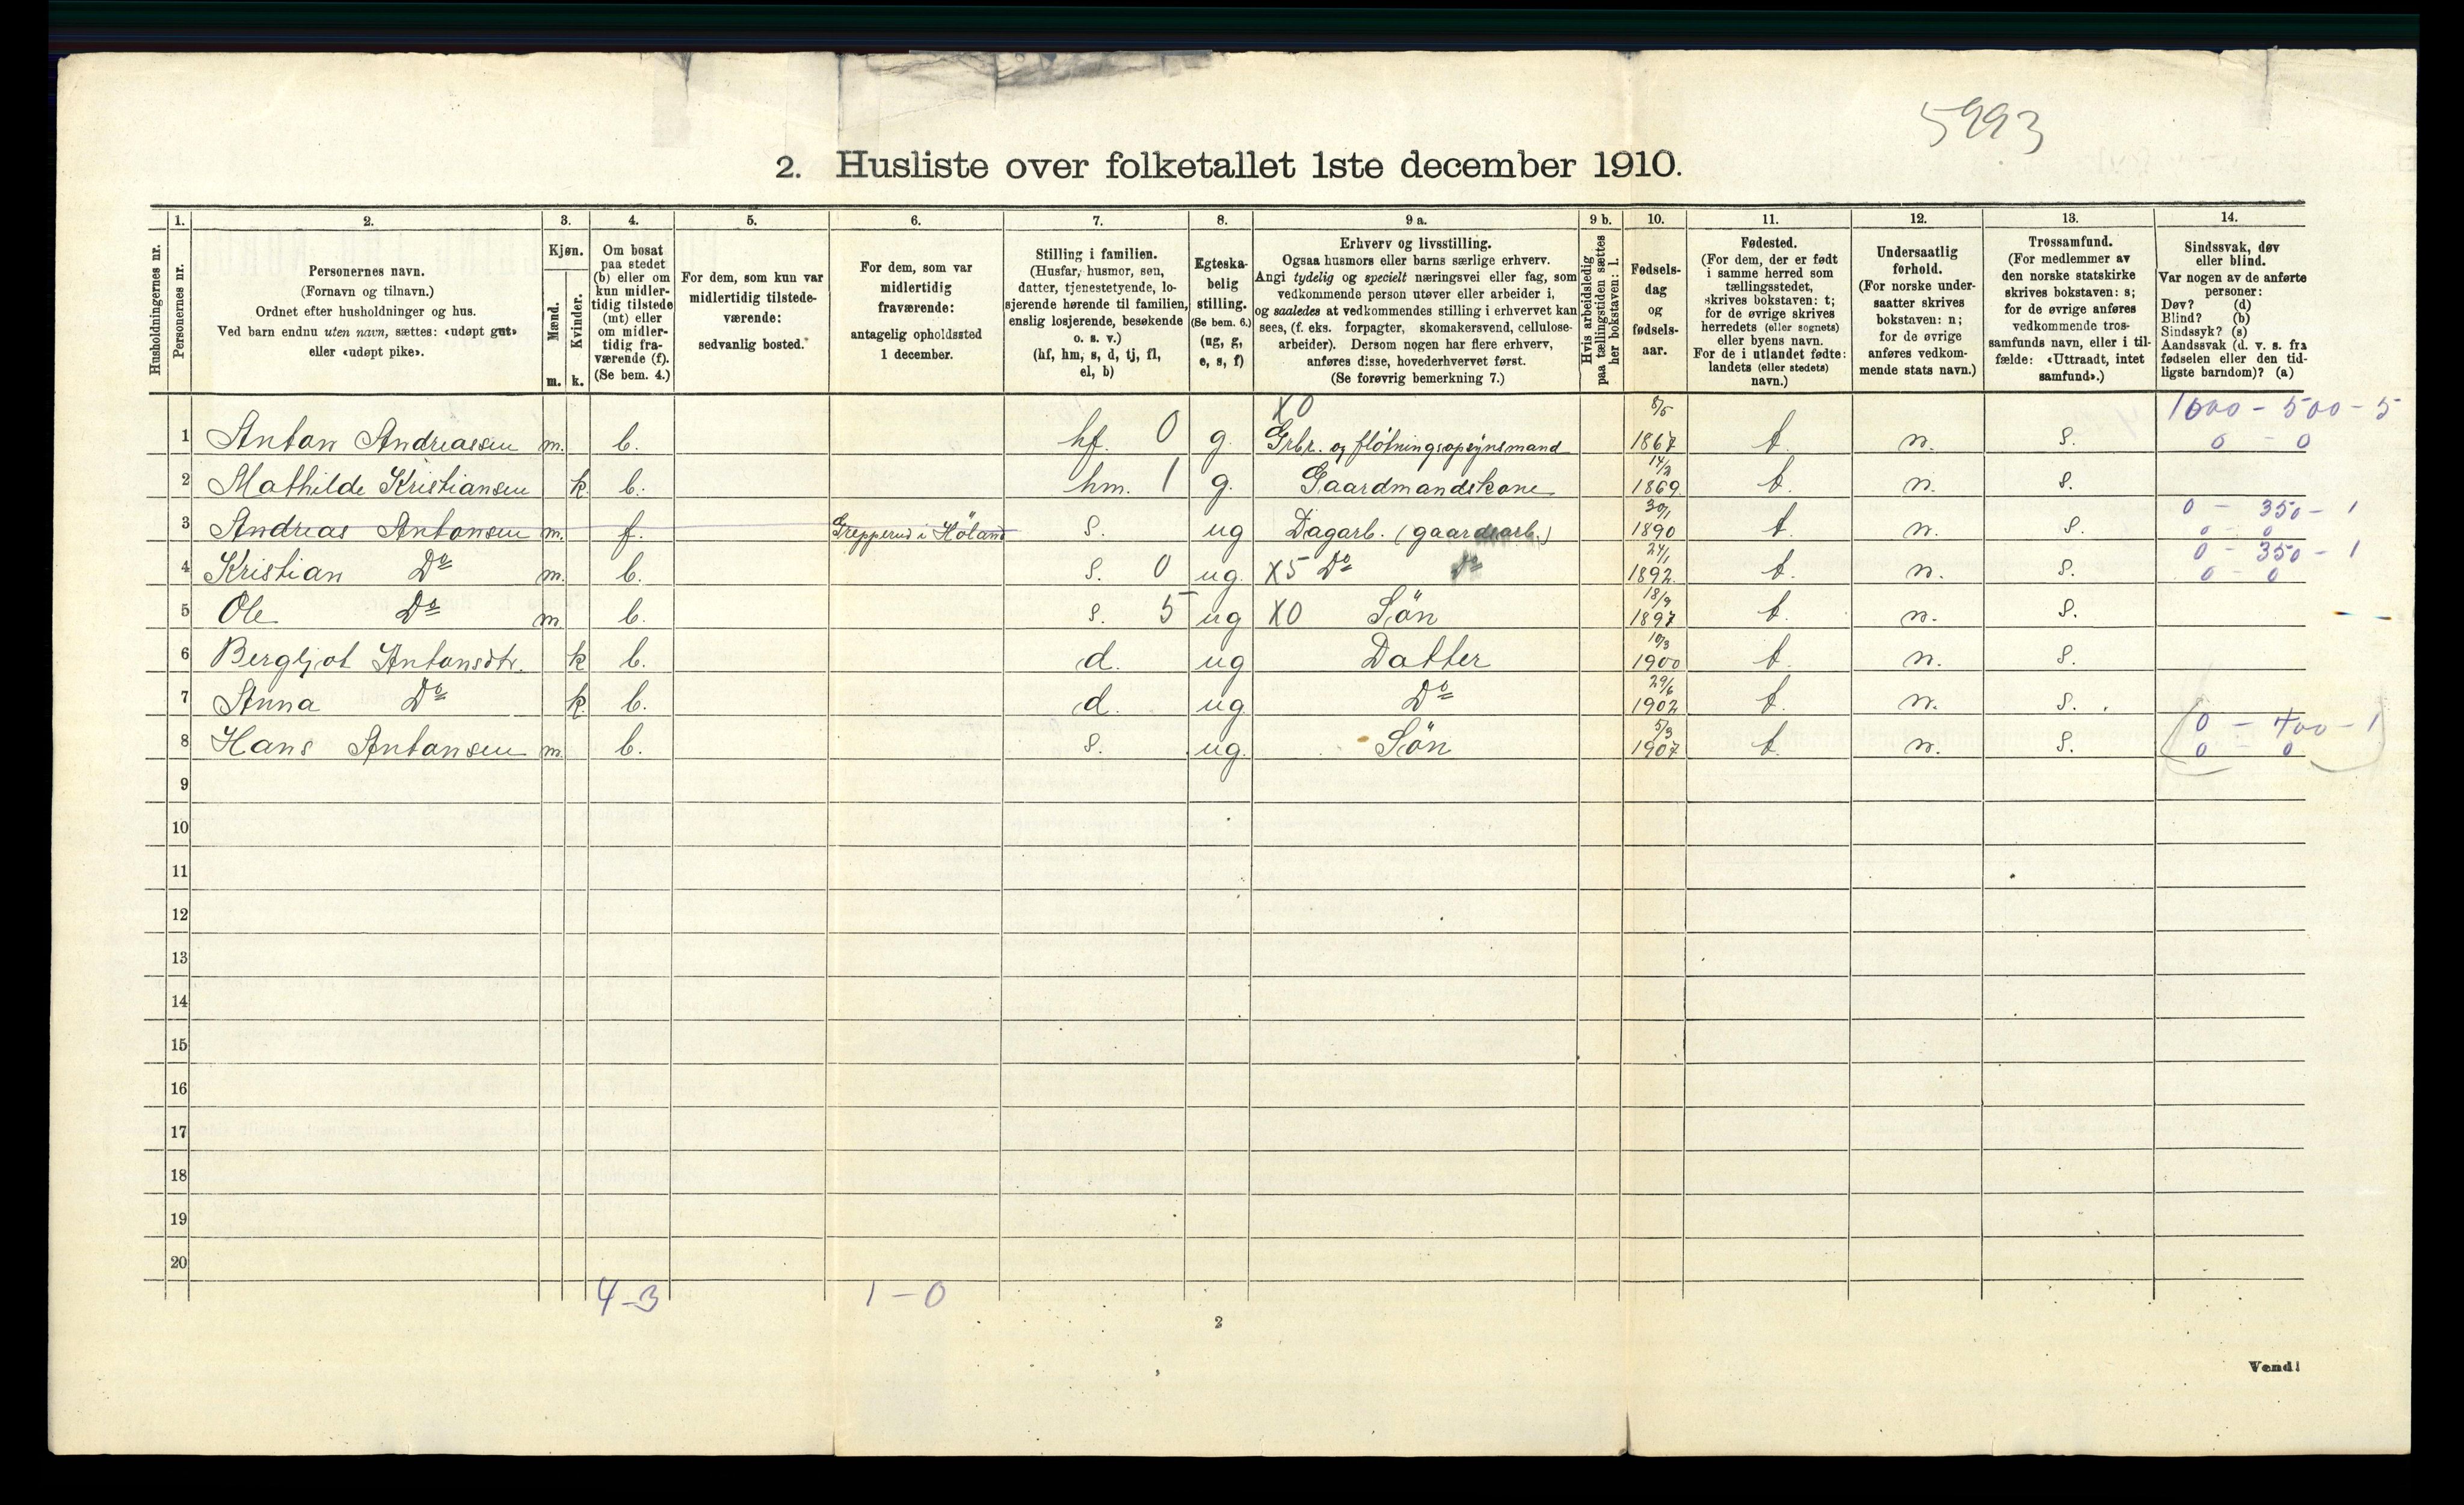 5993
2. Husliste over folketallet 1ste december 1910.
Husholdningernes nr.
1. Personernes nr.
2. Personernes navn.
(Fornavn og tilnavn.)
Ordnet efter husholdninger og hus.
Ved barn endnu uten navn, sættes: «udøpt gut»
eller «udøpt pike».
3. Kjøn.
Mænd. Kvinder.
m. k.
4. Om bosat
paa stedet
(b) eller om
kun midler-
tidig tilstede
(mt) eller
om midler-
tidig fra-
værende (f).
(Se bem. 4.)
5. For dem, som kun var
midlertidig tilstede-
værende:
sedvanlig bosted.
6. For dem, som var
midlertidig
fraværende:
antagelig opholdssted
1 december.
7. Stilling i familien.
(Husfar, husmor, søn,
datter, tjenestetyende, lo-
sjerende hørende til familien,
enslig losjerende, besøkende
o. s. v.)
(hf, hm, s, d, tj, fl,
el, b)
8. Egteska-
belig
stilling.
(Se bem. 6.)
(ug, g,
e, s, f)
9 a. Erhverv og livsstilling.
Ogsaa husmors eller barns særlige erhverv.
Angi tydelig og specielt næringsvei eller fag, som
vedkommende person utøver eller arbeider i,
og saaledes at vedkommendes stilling i erhvervet kan
sees, (f. eks. forpagter, skomakersvend, cellulose-
arbeider). Dersom nogen har flere erhverv,
anføres disse, hovederhvervet først.
(Se forøvrig bemerkning 7.)
9 b. Hvis arbeidsledig
paa tællingstiden sættes
her bokstaven: l.
10. Fødsels-
dag
og
fødsels-
aar.
11. Fødested.
(For dem, der er født
i samme herred som
tællingsstedet,
skrives bokstaven: t;
for de øvrige skrives
herredets (eller sognets)
eller byens navn.
For de i utlandet fødte:
landets (eller stedets)
navn.)
12. Undersaatlig
forhold.
(For norske under-
saatter skrives
bokstaven: n;
for de øvrige
anføres vedkom-
mende stats navn.)
13. Trossamfund.
(For medlemmer av
den norske statskirke
skrives bokstaven: s;
for de øvrige anføres
vedkommende tros-
samfunds navn, eller i til-
fælde: «Uttraadt, intet
samfund».)
14. Sindssvak, døv
eller blind.
Var nogen av de anførte
personer:
Døv? (d)
Blind? (b)
Sindssyk? (s)
Aandssvak (d. v. s. fra
fødselen eller den tid-
ligste barndom)? (a)
X0 8/5 1600 - 500 - 5
1 Anton Andreassen m. b. hf. 0 g. Grbr. og flötningsopsynsmand 1867 t. n. s. 0 - 0
2 Mathilde Kristiansen k. b. hm. 1 g. Gaardmandskone 14/3 1869 t. n. s.
3 Andreas Antonsen m. f. Grepperud i Höland s. ug Dagarb. (gaardsarb.) 30/1 1890 t. n. s. 0 - 350 - 1 0 - 0
4 Kristian Do m. b. s. 0 ug. X5 Do Do 24/1 1892. t. n. s. 0 - 350 - 1 0 - 0
5 Ole Do m. b. s. 5 ug X0 Sön 18/9 1897 t. n. s.
6 Bergljot Antonsdtr. k b. d. ug Datter 10/3 1900 t. n. s.
7 Anna Do k. b. d. ug. Do 29/6 1902 t. n. s.
8 Hans Antonsen m. b. s. ug. Sön 5/3 1907 t. n. s. 0 - 400 - 1 0 - 0
9
10
11
12
13
14
15
16
17
18
19
20
4-3 1-0
2
Vend!